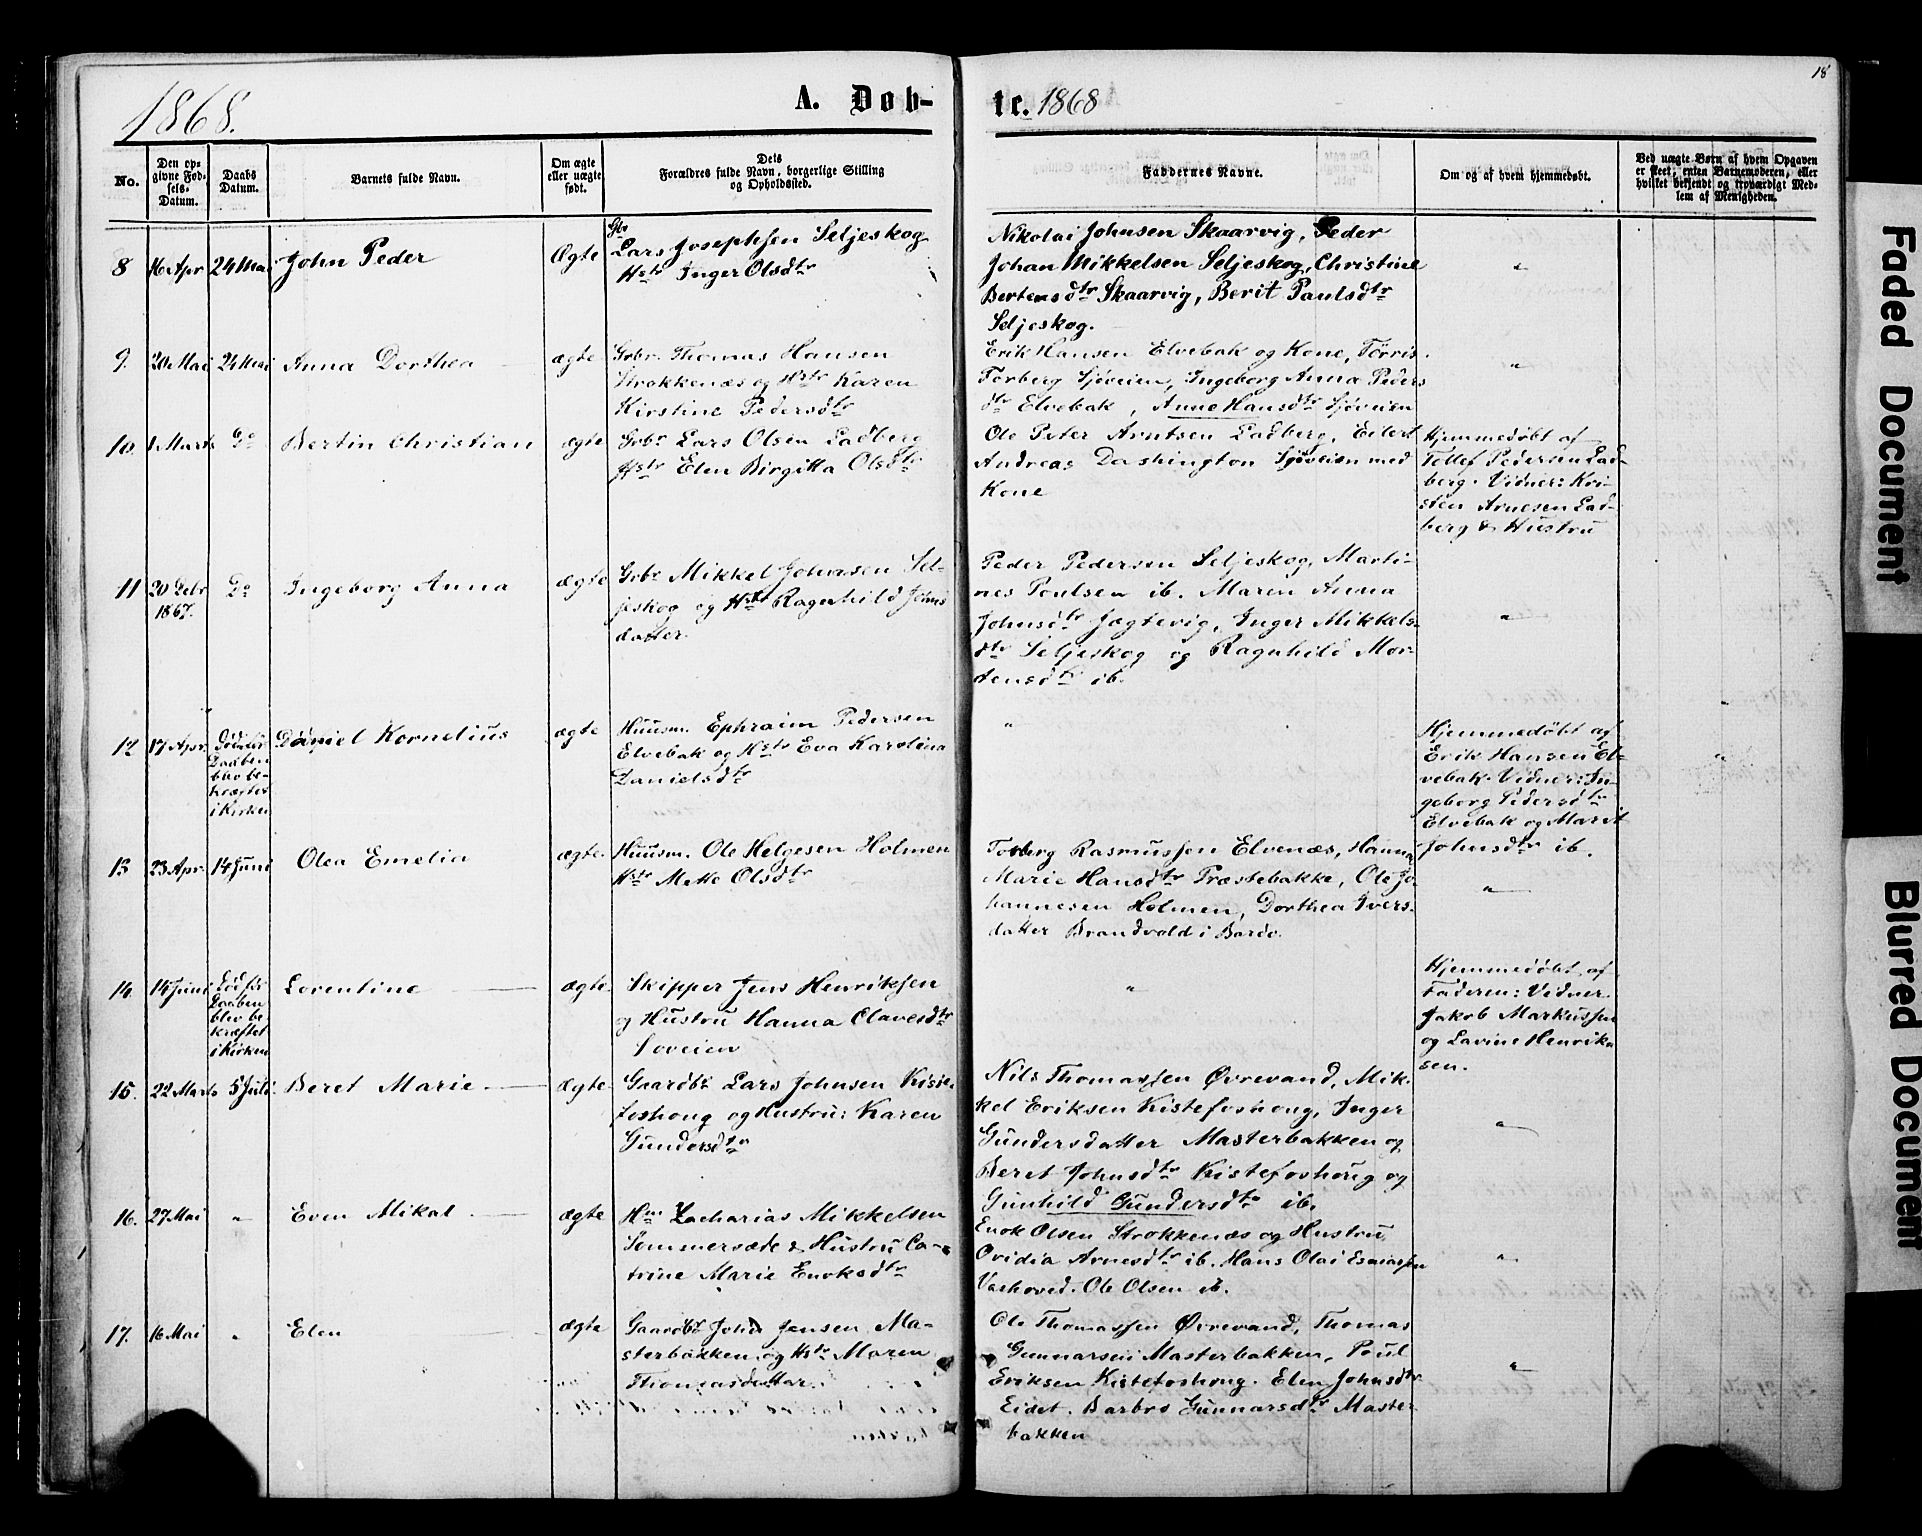 18
1868.
A. Døb-
te. 1868
No.
Den op-
givne Fød-
sels-
Datum.
Daabs
Datum.
Barnets fulde Navn.
Om ægte
eller uægte
født.
Dets
Forældres fulde Navn, borgerlige Stilling
og Opholdssted.
Faddernes Navne.
Om og af hvem hjemmedøbt.
Ved uægte Børn af hvem Opgaven
er skeet, enten Barnemoderen, eller
hvilket bekjendt og troværdigt Med-
lem af Menigheden.
8 16 Apr 24 Mai John Peder Ægte
Gbr
Lars Josephsen Seljeskog
Hstr Inger Olsdtr
Nikolai Johnsen Skaarvig, Peder
Johan Mikkelsen Seljeskog, Christine
Bertensdtr Skaarvig, Berit Paulsdtr
Seljeskog.
"
9. 20 Mai 24 Mai Anna Dorthea ægte
Grbr. Thomas Hansen
Strokkenæs og Hstr Karen
Kirstine Pedersdtr
Erik Hansen Elvebak og Kone, Tørris
Torberg Sjøveien, Ingeborg Anna Peders
dtr Elvebak, Anne Hansdtr Sjøveien
"
10. 1 Marts Do Bertin Christian ægte
Grbr Lars Olsen Ladberg
Hstr Elen Birgitta Olsdtr
Ole Peter Arntsen Ladberg, Eilert
Andreas Dashington Sjøveien med
Kone
Hjemmedøbt af
Tollef Pedersen Lad-
berg. Vidner: Kri-
sten Arnesen Lad-
berg & Hustru
11 20 Debr
1867. Do Ingeborg Anna ægte
Grbr Mikkel Johnsen Sel-
jeskog og Hstr Ragnhild Jøns
datter.
Peder Pedersen Seljeskog, Marti-
nes Poulsen ib. Maren Anna
Johnsdtr Jægtevig, Inger Mikkels-
dtr Seljeskog og Ragnhild Mor-
tensdtr ib.
"
12 17 Apr.
Død før
Daaben
blev be-
kræftet
i Kirken
Daniel Kornelius ægte
Huusm. Ephraim Pedersen
Elvebak og Hstr Eva Karolina
Danielsdtr
"
Hjemmedøbt af
Erik Hansen El-
vebak. Vidner: In-
geborg Pedersdtr
Elvebak og Marit
Johnsdtr ib.
"
13 23 Apr. 14 Juni Olea Emelia ægte.
Huusm. Ole Helgesen Holmen
Hstr Mette Olsdtr
Torberg Rasmussen Elvenæs, Hanna
Marie Hansdtr Præstebakke, Ole Jo-
hannesen Holmen, Dorthea Ivers-
datter Brandvold i Bardo.
"
14. 14 Juni
Død før
Daaben
blev be-
kræftet
i Kirken
Lorentine ægte.
Skipper Jens Henriksen
og Hustru Hanna Olavesdtr
Soveien
"
Hjemmedøbt af
Faderen: Vidner
Jakob Markussen
og Lavine Henrik-
sen.
15. 22 Marts 5 Juli. Beret Marie ægte
Gaardbr Lars Johnsen Kiste-
foshoug og Hustru: Karen
Gundersdtr
Nils Thomassen Øvrevand, Mik-
kel Eriksen Kistefoshoug, Inger
Gundersdatter Masterbakken og
Beret Johnsdtr Kistefoshoug og
Gunhild Gundersdtr ib.
"
16. 27 Mai " Even Mikal ægte
Hm Zacharias Mikkelsen
Sommersæde & Hustru Ca-
trine Marie Enoksdtr
Enok Olsen Strokkenæs og Hustru
Ovidia Arnesdtr ib. Hans Olai Esaiassen
Vashoved. Ole Olsen ib.
"
17. 16 Mai " Elen ægte
Gaardbr John Jensen Ma-
sterbakken og Hstr Maren
Thomasdatter
Ole Thomassen Øvrevand, Thomas
Gunnarsen Masterbakken, Poul
Eriksen Kistefoshoug. Elen Johnsdtr
Eidet. Barbro Gunnarsdtr Master-
bakken
"
Faded Document
Blurred Document